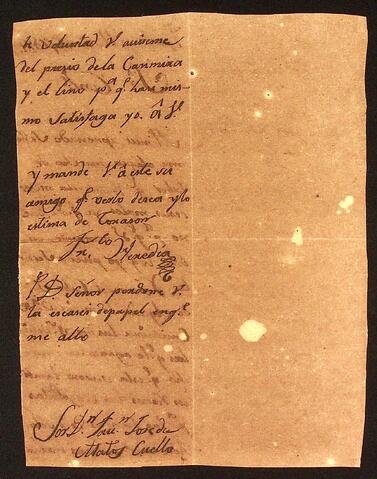 te voluntad Vd. auiseme
del prezio de la Casimira
y el lino pa. q. haci mis
mo Satisfaga yo. â Vd.
y mande Vd. â este su
amigo q. verlo decea y lo
estima de Corason
Jph.
Heredia
PD Señor perdone V.
la escases de papel en q.
me allo
Sor. Dn.
Jose de
Matos Cuello